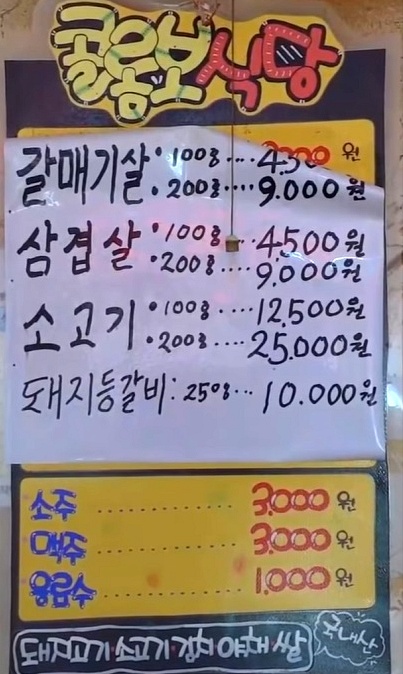 콜롬보식당
갈매기살 · 100g .... 4.500 원
· 200g .... 9.000 원
삼겹살 · 100g .... 4,500 원
· 200g .... 9,000 원
소고기 · 100g .... 12,500 원
· 200g .... 25,000 원
돼지등갈비: 250g ... 10.000 원
소주 .............. 3,000 원
맥주 .............. 3,000 원
음료수 .............. 1,000 원
돼지고기·소고기·김치·야채·쌀 국내산